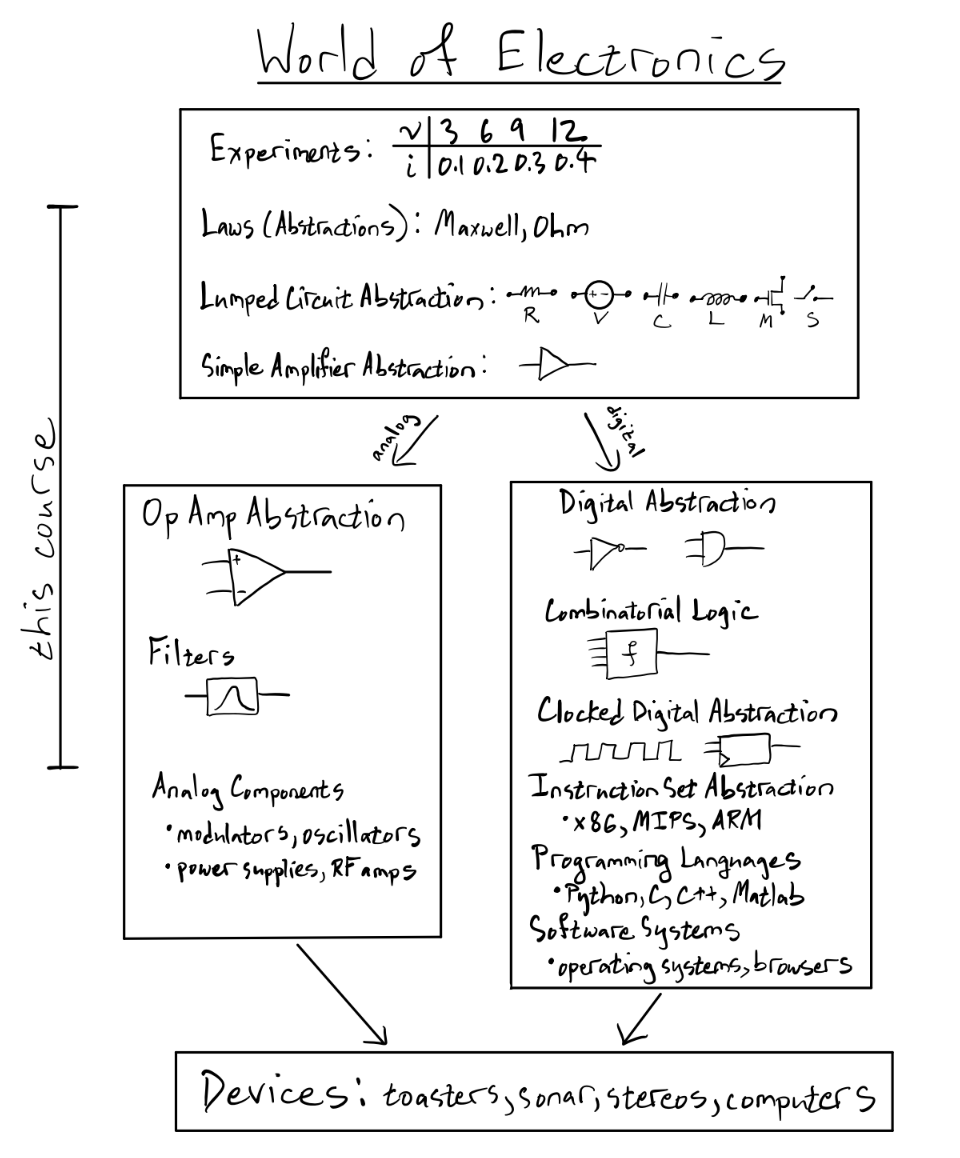 World of Electronics
Experiments: v 3 6 9 12
i 0.1 0.2 0.3 0.4
Laws (Abstractions): Maxwell, Ohm
Lumped Circuit Abstraction:
+ -
R V C L M S
Simple Amplifier Abstraction:
analog
digital
this course
Op Amp Abstraction
+
-
Filters
Analog Components
• modulators, oscillators
• power supplies, RF amps
Digital Abstraction
Combinatorial Logic
f
Clocked Digital Abstraction
Instruction Set Abstraction
• x86, MIPS, ARM
Programming Languages
• Python, C, C++, Matlab
Software Systems
• operating systems, browsers
Devices: toasters, sonar, stereos, computers